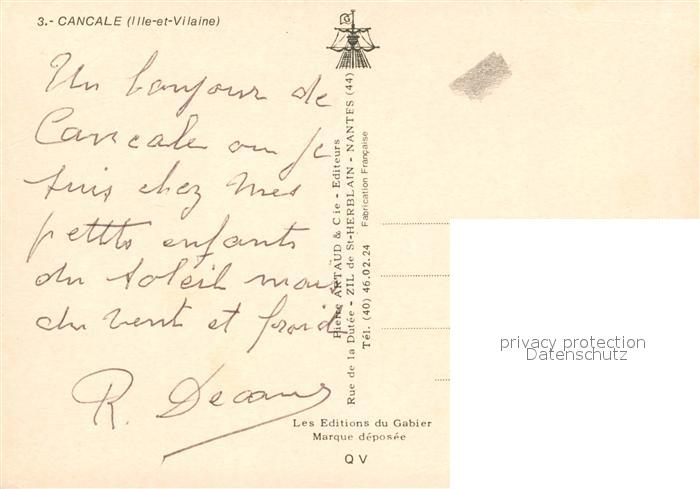 3.- CANCALE (Ille-et-Vilaine)
Un bonjour de
Cancale ou je
suis chez mes
petits enfants
du soleil mais
du vent et froid
R.
Pierre ARTAUD & Cie - Editeurs
Rue de la Dutée - ZIL de St-HERBLAIN - NANTES (44)
Tél. (40) 46.02.24 Fabrication Française
Les Editions du Gabier
Marque déposée
QV
privacy protection
Datenschutz